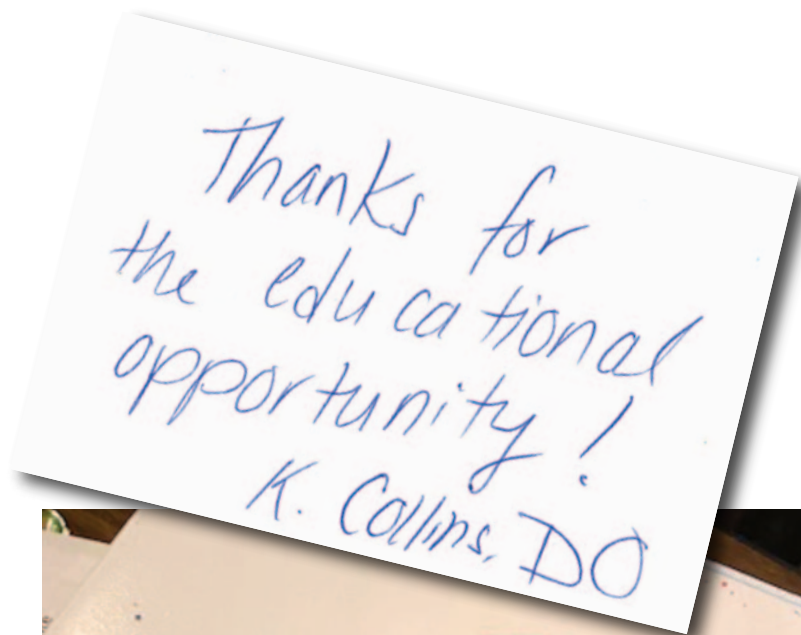 Thanks for
the educational
opportunity!
K. Collins, DO